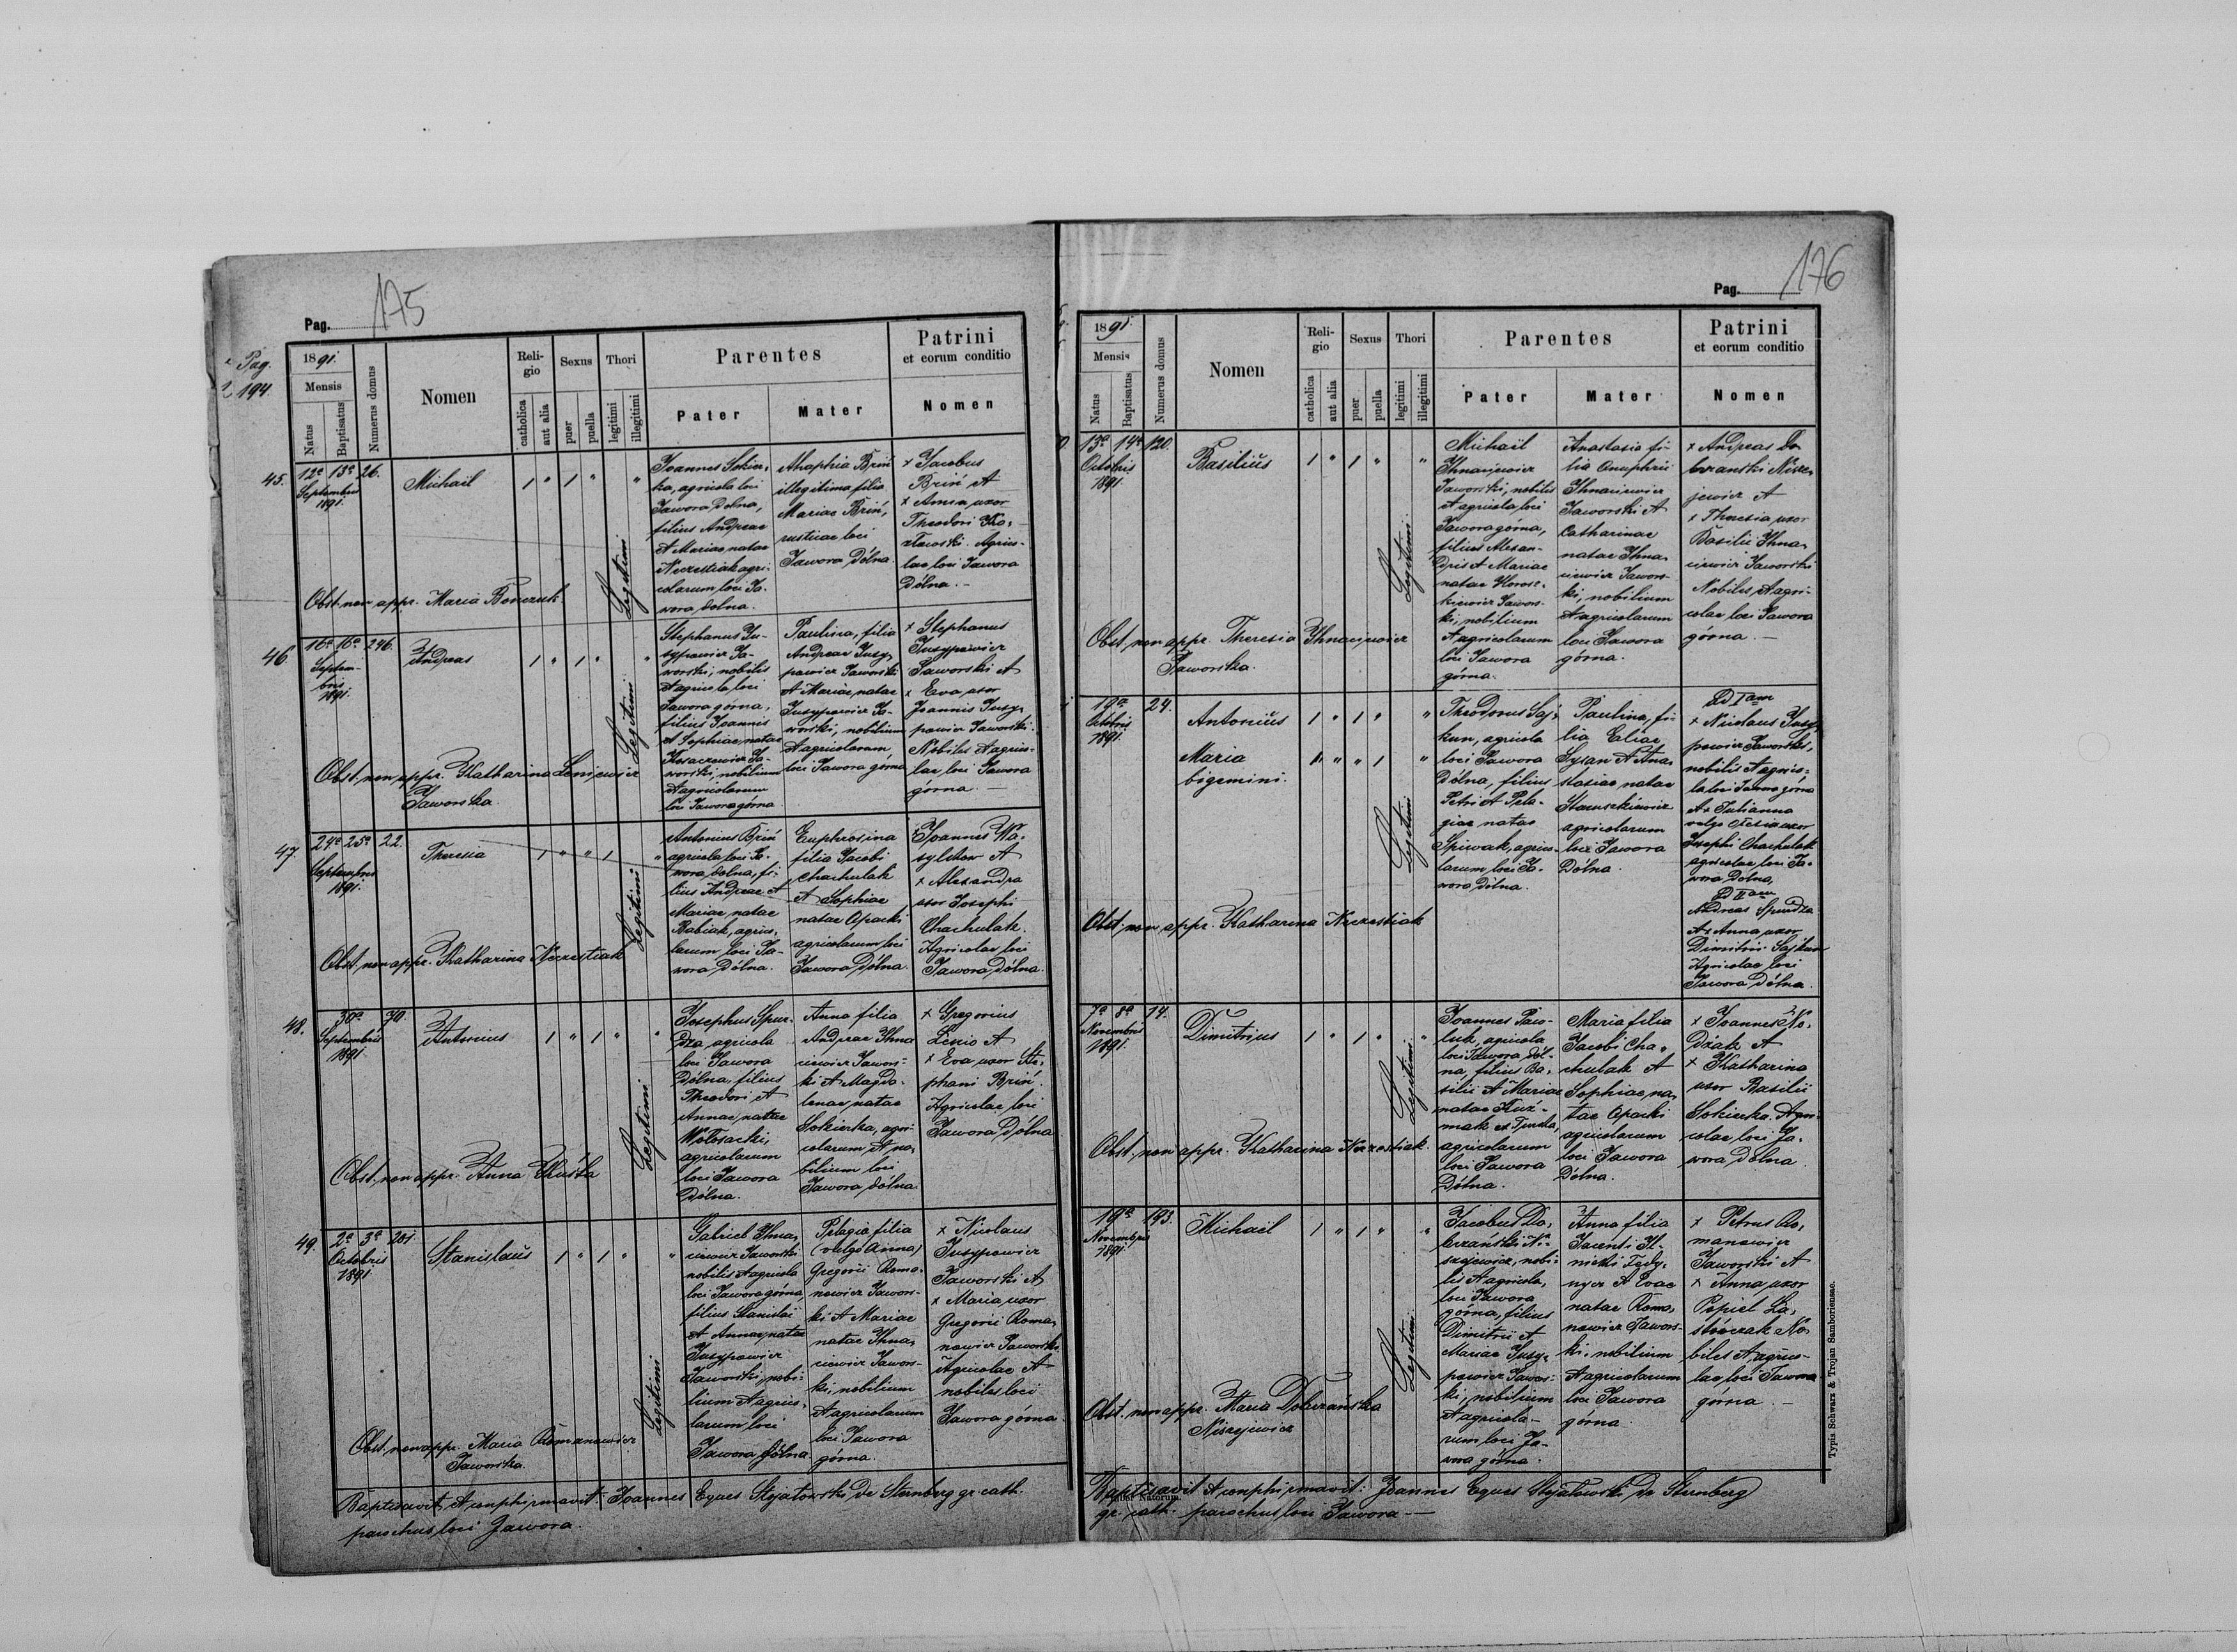 175
Pag.
Pag.
194
1891.
Mensis
Natus
Baptisatus
Numerus domus
Nomen
Religio
catholica
aut alia
Sexus
puer
puella
Thori
legitimi
illegitimi
Parentes
Pater
Mater
Patrini
et eorum conditio
Nomen
45.
12a 13a 26.
Septembris
1891.
Michaël
1 " 1 " "
Legitimi
Joannes Sokier,
ka, agricola loci
Jawora dolna,
filius Andreae
et Mariae natae
Neczestiak agri-
colarum loci Ja-
wora dolna.
Ahaphia Briń
illegitima filia
Mariae Briń,
rusticae loci
Jawora Dólna
+ Jacobus
Briń et
+ Anna uxor
Theodori Ko,
złowski. Agrico-
lae loci Jawora
Dólna. —
Obst. non appr. Maria Bonczuk.
46
16a 16a 246.
Septem-
bris
1891.
Andreas
1 " 1 " "
Legitimi
Stephanus Ju-
sypowicz Ja-
worski, nobilis
et agricola loci
Jawora górna,
filius Joannis
et Sophiae, natae
Kosaczewicz Ja-
worski, nobilium
et agricolarum
loci Jawora górna
Paulina, filia
Andreae Jusy,
powicz Jaworski
et Mariae, natae
Jusypowicz Ja-
worski, nobilium
et agricolarum
loci Jawora górna
+ Stephanus
Jusypowicz
Jaworski et
+ Eva uxor
Joannis Jusy,
powicz Jaworski.
Nobiles et agrico-
lae loci Jawora
górna. —
Obst. non appr. Katharina Leniewicz
Jaworska.
47.
24a 25a 22.
Septembris
1891.
Theresia
1 " " 1 "
Legitimi
Antonius Briń
agricola loci Ja-
wora dolna, fi-
lius Andreae et
Mariae natae
Babiak, agrico,
larum loci Ja-
wora Dólna.
Euphrosina
filia Jacobi
Chachulak
et Sophiae
natae Opacki
agricolarum loci
Jawora Dólna.
Joannes Wa,
sylchow et
+ Alexandra
uxor Josephi
Chachulak.
Agricolae loci
Jawora Dólna.
Obst. non appr. Katharina Neczestiak
48.
30a 70
Septembris
1891.
Antonius
1 " 1 " "
Legitimi
Josephus Spur-
dza agricola
loci Jawora
Dólna, filius
Theodori et
Annae, natae
Wołosacki,
agricolarum
loci Jawora
Dólna.
Anna filia
Andreae Ihna
ciewicz Jawors-
ki et Magda-
lenae, natae
Sokierka, agri-
colarum et no,
bilium loci
Jawora dólna.
+ Gregorius
Lesio et
+ Eva uxor Ste,
phani Briń.
Agricolae loci
Jawora Dólna
Obst. non appr. Anna Kuśka
49.
2a 3a 201
Octobris
1891
Stanislaüs
1 " 1 " "
Legitimi
Gabriel Ihna,
ciewicz Jaworski
nobilis et agricola
loci Jawora górna
filius Stanislai
et Annae, natae
Jusypowicz
Jaworski, nobi-
lium et agrico,
larum loci
Jawora górna
Pelagia filia
(vulgo Anna)
Gregorii Roma-
nowicz Jawors-
ki et Mariae
natae Ihna,
ciewicz Jawors-
ki, nobilium
et agricolarum
loci Jawora
górna.
+ Nicolaus
Jusypowicz
Jaworski et
+ Maria uxor
Gregorii Roma,
nowicz Jaworski.
Agricolae et
nobiles loci
Jawora górna.
Obst. non appr. Maria Romanowicz
Jaworska.
Baptisavit et conphirmavit: Joannes Eques Stojałowski de Sternberg gr. cath.
parochus loci Jawora.
176
Pag.
1891.
Mensis
Natus
Baptisatus
Numerus domus
Nomen
Religio
catholica
aut alia
Sexus
puer
puella
Thori
legitimi
illegitimi
Parentes
Pater
Mater
Patrini
et eorum conditio
Nomen
13a 14a 120.
Octobris
1891
Basiliüs
1 " 1 " "
Legitimi
Michaël
Ihnaciewicz
Jaworski, nobilis
et agricola loci
Jawora górna,
filius Alexan-
dris et Mariae
natae Horosz-
kiewicz Jawors-
ki, nobilium
et agricolarum
loci Jawora
górna.
Anastasia fi-
lia Onuphrii
Ihnaciewicz
Jaworski et
Catharinae
natae Ihna,
ciewicz Jawors-
ki, nobilium
et agricolarum
loci Jawora
górna.
+ Andreas Do
brzanski Nisze,
jewicz et
+ Theresia uxor
Basilii Ihna,
ciewicz Jaworski
Nobiles et agri-
colae loci Jawora
górna. —
Obst. non appr. Theresia Ihnaciewicz
Jaworska.
19a 24.
Octobris
1891.
Antoniüs
1 " 1 " "
Maria
bigemini.
1 " " 1 "
Legitimi
Theodorus Saj,
kun, agricola
loci Jawora
Dólna, filius
Petri et Pela-
giae natae
Spiwak, agrico-
larum loci Ja-
wora dólna.
Paulina, fi-
lia Eliae
Lysan et Ana-
stasiae natae
Staruszkiewicz
agricolarum
loci Jawora
Dólna.
Ad Iam
+ Nicolaus Jusy
powicz Jaworski,
nobilis et agrico-
la loci Jawora górna
et + Julianna
vulgo Tesia uxor
Josephi Chachulak
agricolae loci Ja-
wora Dolna,
Ad IIam
Andreas Spurdza
et + Anna uxor
Dimitrii Sajkun
Agricolae loci
Jawora dólna.
Obst. non appr. Katharina Neczestiak
7a 8a 14.
Novembris
1891.
Dimitrius
1 " 1 " "
Legitimi
Joannes Paw-
luk, agricola
loci Jawora dól-
na, filius Ba,
silii et Mariae
natae Kuź-
mak ex Turka,
agricolarum
loci Jawora
Dólna.
Maria filia
Jacobi Cha,
chulak et
Sophiae na,
tae Opacki
agricolarum
loci Jawora
Dólna.
+ Joannes No,
dzak et
+ Katharina
uxor Basilii
Sokierka. Agri-
colae loci Ja,
wora dólna.
Obst. non appr. Katharina Neczestiak.
19a 193.
Novembris
1891.
Michaël
1 " 1 " "
Legitimi
Jacobus Do,
brzański Ni-
szejewicz, nobi-
lis et agricola,
loci Jawora
górna, filius
Dimitrii et
Mariae Jusy,
powicz Jawors-
ki, nobilium
et agricola-
rum loci Ja-
wora górna.
Anna filia
nicki Tedy,
nycz et Evae
natae Roma,
nowicz Jawors-
ki, nobilium
et agricolarum
loci Jawora
górna.
+ Petrus Ro,
manowicz
Jaworski et
+ Anna uxor
Popiel
No
biles et agrico-
lae, loci Jawora
górna. —
Obst. non appr. Maria Dobrzańska
Niszejewicz
Baptisavit et conphirmavit: Joannes Eques Stojałowski de Sternberg
Liber Natorum.
gr. cath. parochus loci Jawora —
Typis Schwarz & Trojan Samboriensee.